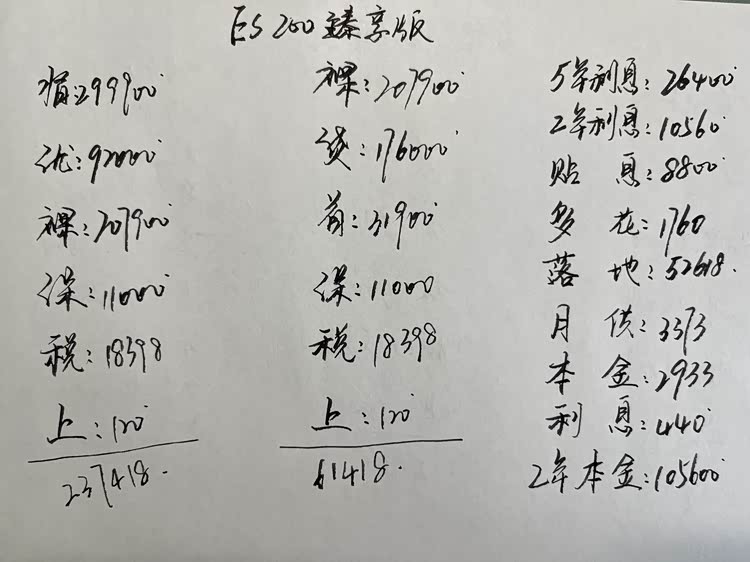 ES 200 臻享版
指:299900
优:92000
裸:207900
保:11000
税:18398
上:120
237418.
裸:207900
贷:176000
首:31900
保:11000
税:18398
上:120
61418.
5年利息:26400
2年利息:10560
贴息:8800
多花:1760
落地:52618.
月供:3373
本金:2933
利息:440
2年本金:105600